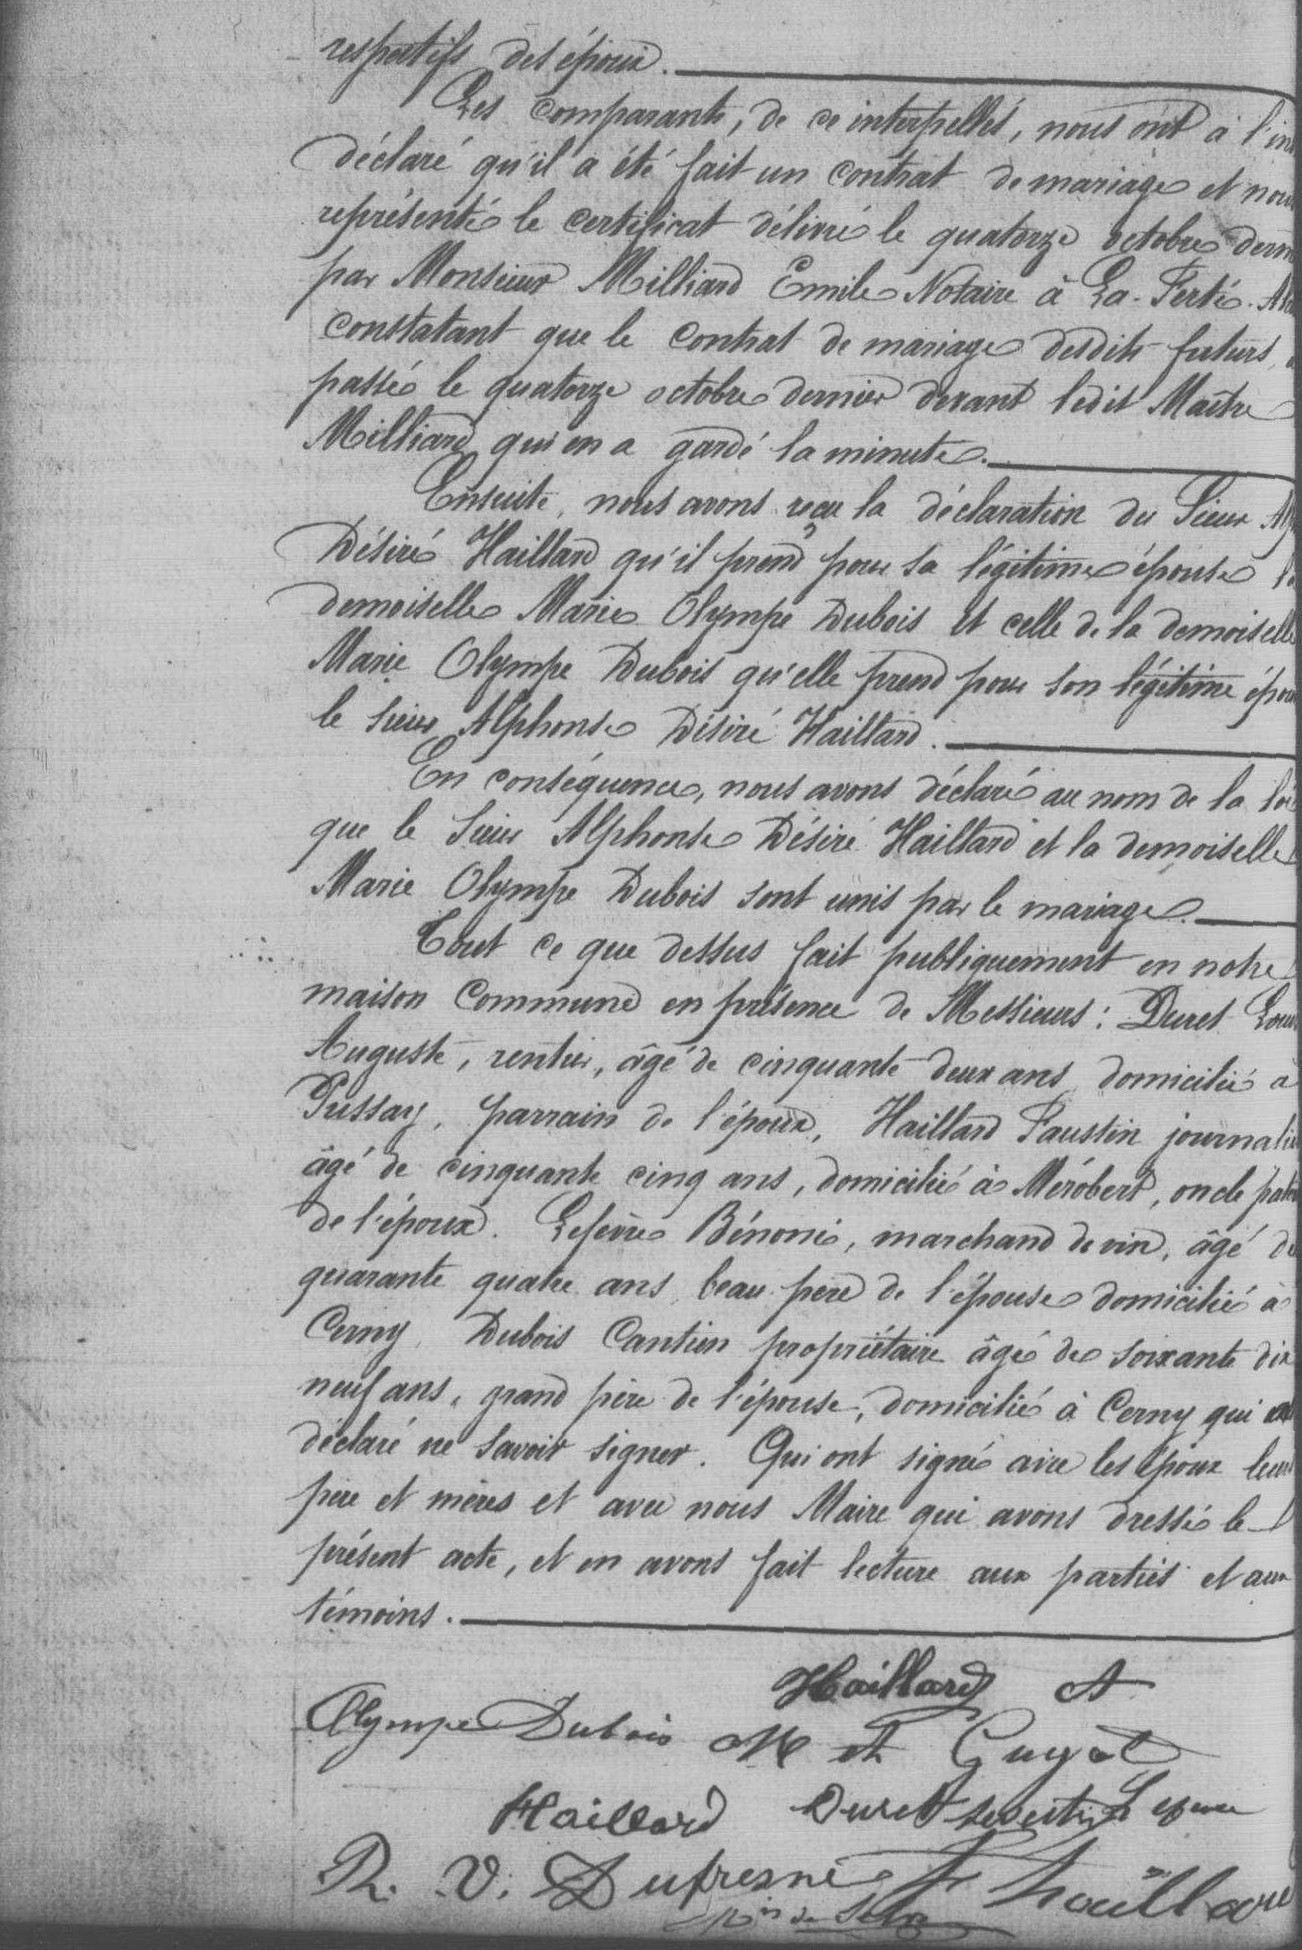 respectifs des époux.
Les comparants, de ce interpellés, nous ont à l'in
déclaré qu'il a été fait un contrat de mariage et nous
représenté le certificat délivré le quatorze octobre dern
par Monsieur Milliard Emile Notaire à La-Ferté-Al
constatant que le contrat de mariage desdits futurs, a
passé le quatorze octobre dernier devant ledit Maître
Milliard qui en a gardé la minute.
Ensuite, nous avons reçu la déclaration du Sieur Alp
Désiré Haillard qu'il prend pour sa légitime épouse la
demoiselle Marie Olympe Dubois et celle de la demoiselle
Marie Olympe Dubois qu'elle prend pour son légitime épou
le sieur Alphonse Désiré Haillard.
En conséquence, nous avons déclaré au nom de la loi
que le sieur Alphonse Désiré Haillard et la demoiselle
Marie Olympe Dubois sont unis par le mariage.
Tout ce que dessus fait publiquement en notre
maison Commune en présence de Messieurs : Duret Louis
Auguste, rentier, âgé de cinquante-deux ans, domicilié à
Pussay, parrain de l'époux, Haillard Faustin journalie
âgé de cinquante cinq ans, domicilié à Mérobert, oncle pate
de l'époux. Lefèvre Bénoni, marchand de vin, âgé de
quarante quatre ans, beau père de l'épouse domicilié à
Cerny, Dubois Cantien propriétaire âgé de soixante dix
neuf ans, grand père de l'épouse, domicilié à Cerny qui a
déclaré ne savoir signer. Qui ont signé avec les époux leurs
père et mères et avec nous Maire qui avons dressé le
présent acte, et en avons fait lecture aux parties et aux
témoins.
Haillard A
Olympe Dubois M A Guyot
Haillard Duret Lefevre
R. V. Dufresne F haillard